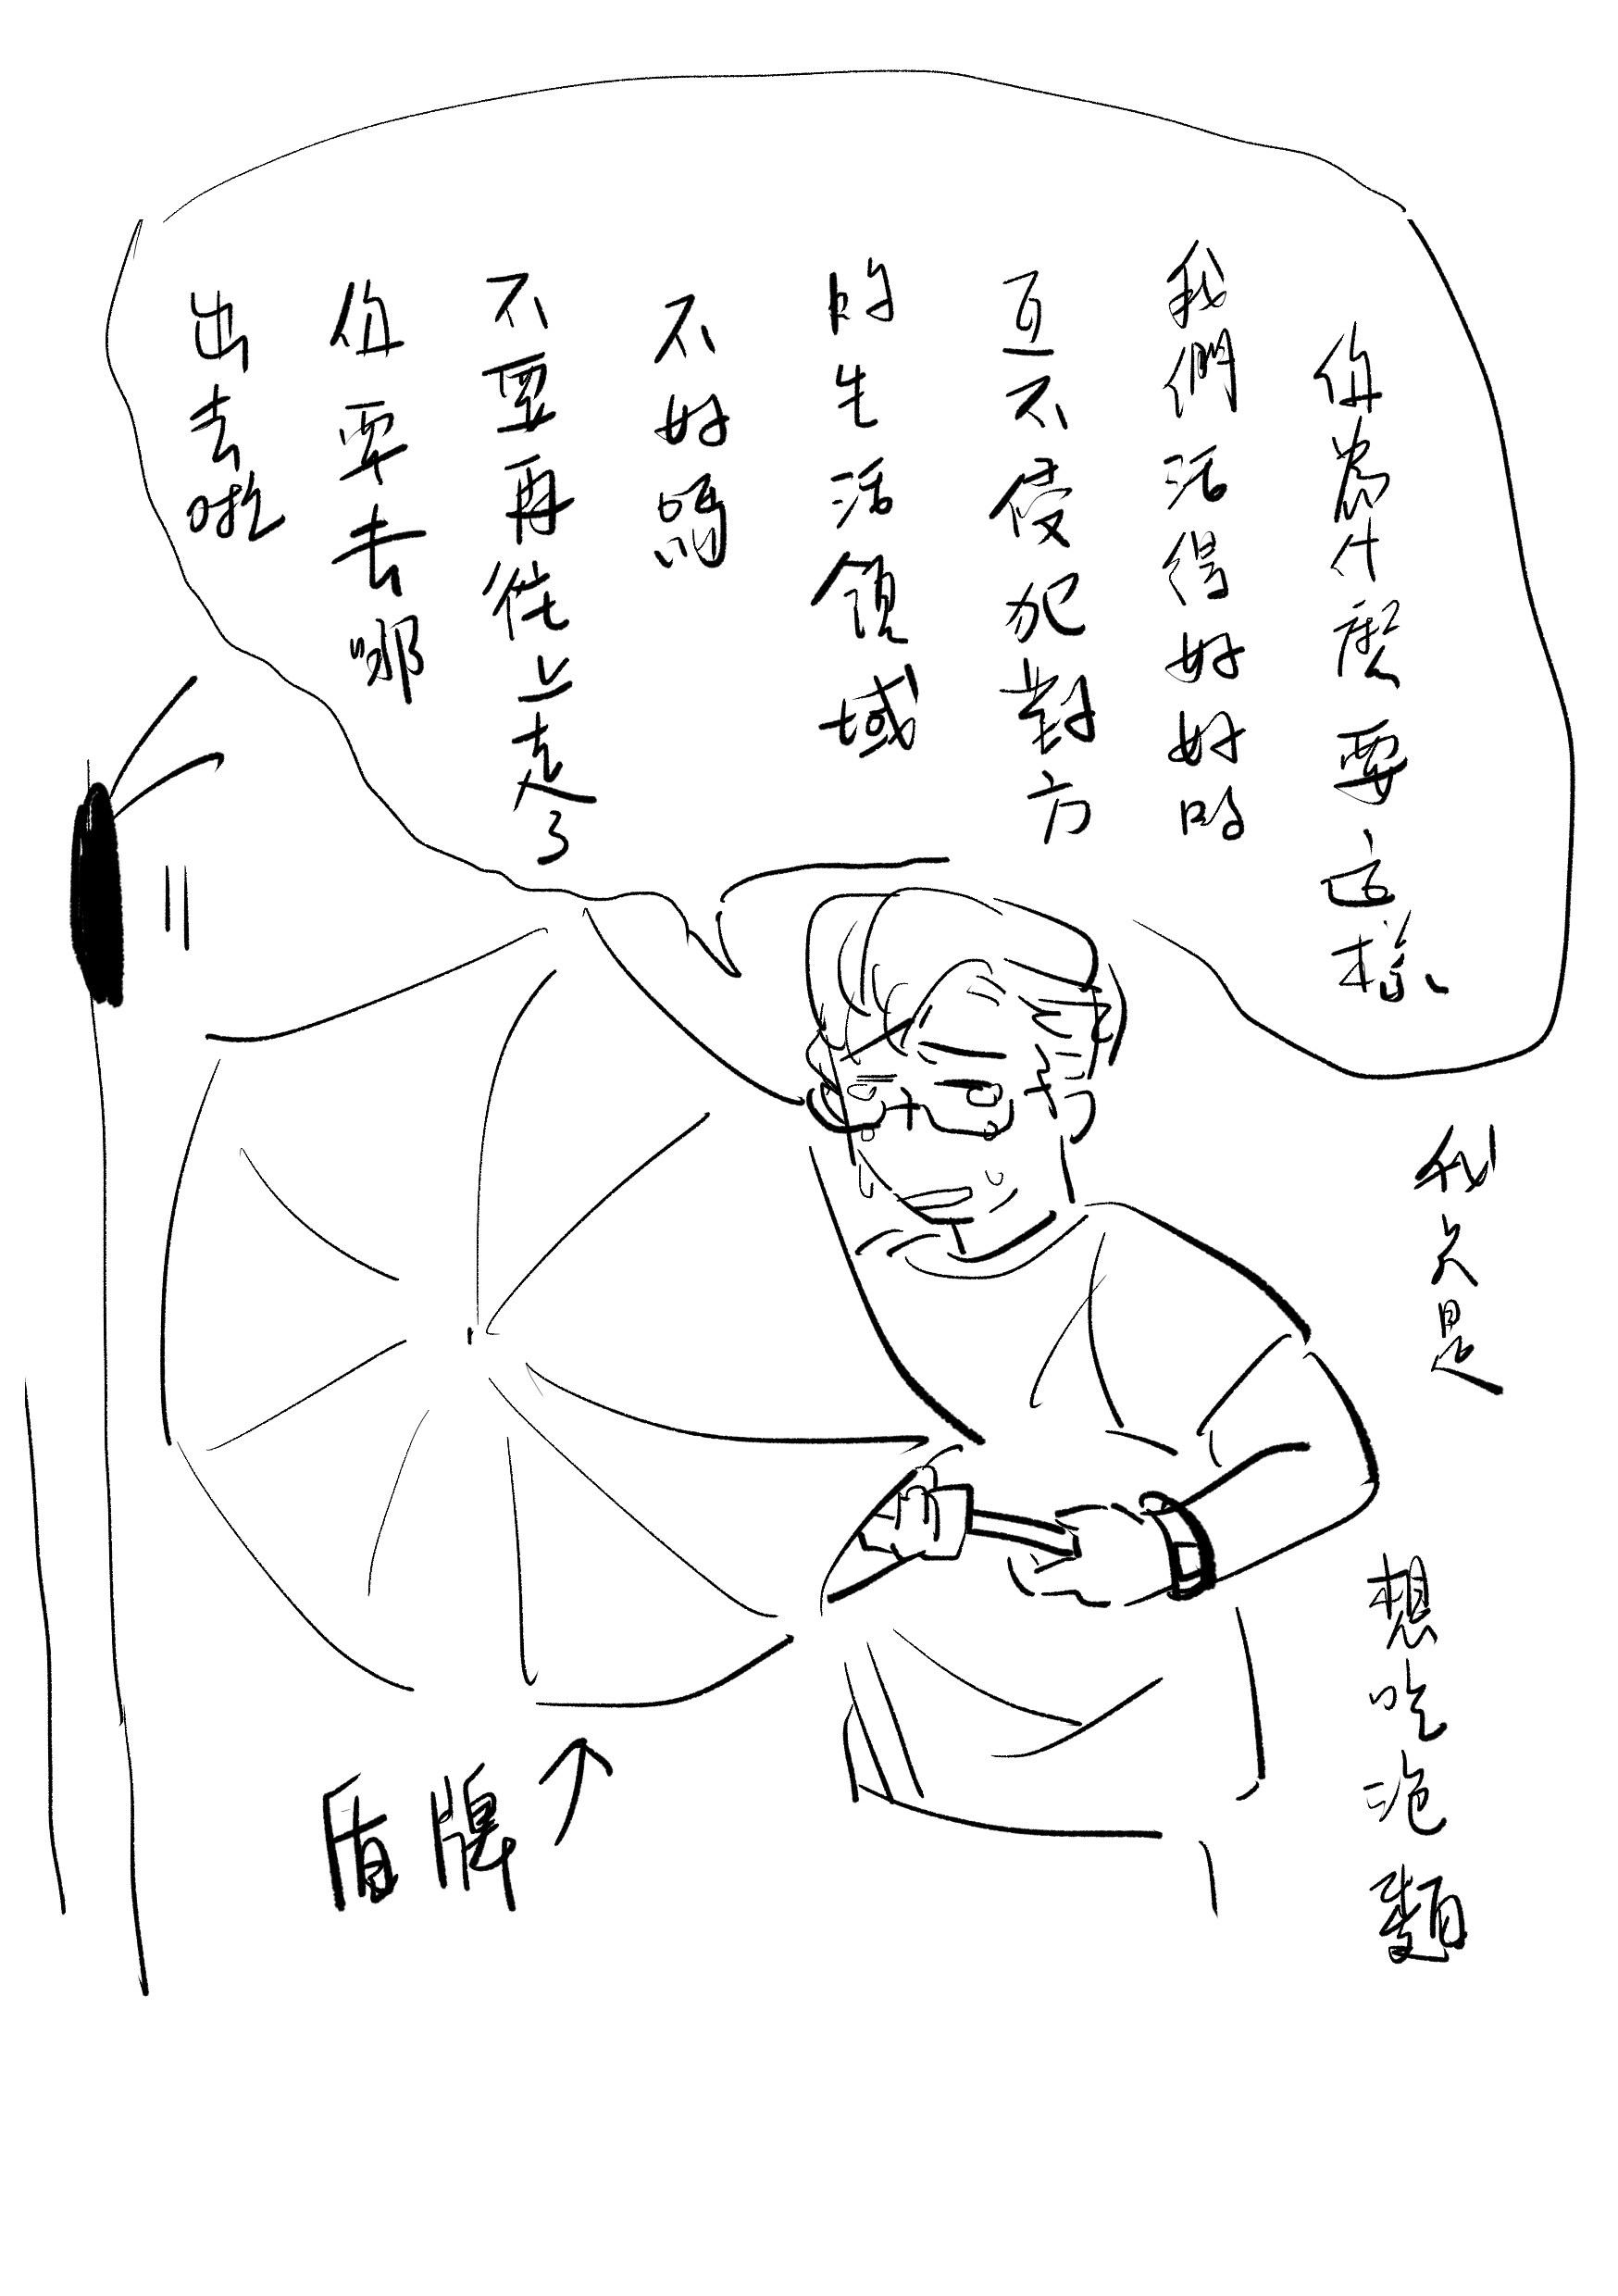 你為什麼要這樣
我們活得好好的
互不侵犯對方
的生活領域
不好嗎
不要再往上走了
你要去哪
出去啦
我只是
想吃泡麵
盾牌↑